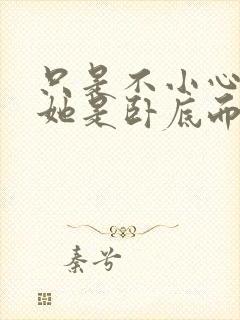 只是不小心
她是卧底而
秦兮